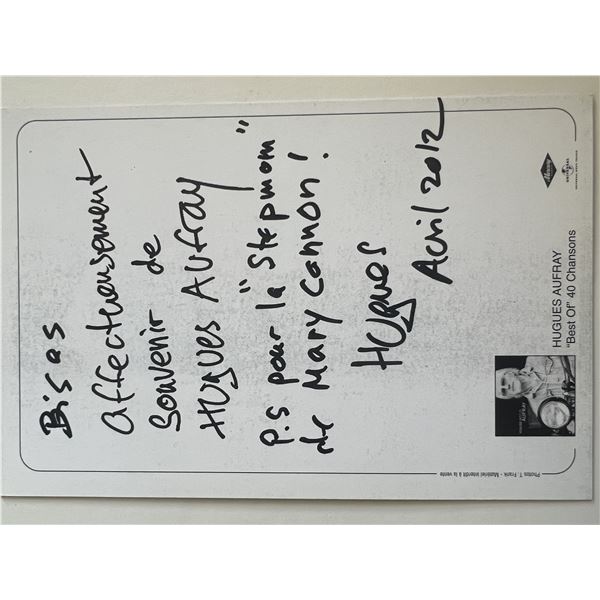 Bises
affectueusement
souvenir de
HUGUES AUFRAY
p.s pour la "Stepmom"
de Mary Cannon!
Hugues
Avril 2012
HUGUES AUFRAY
"Best Of" 40 Chansons
Photos T. Frank - Matériel interdit à la vente